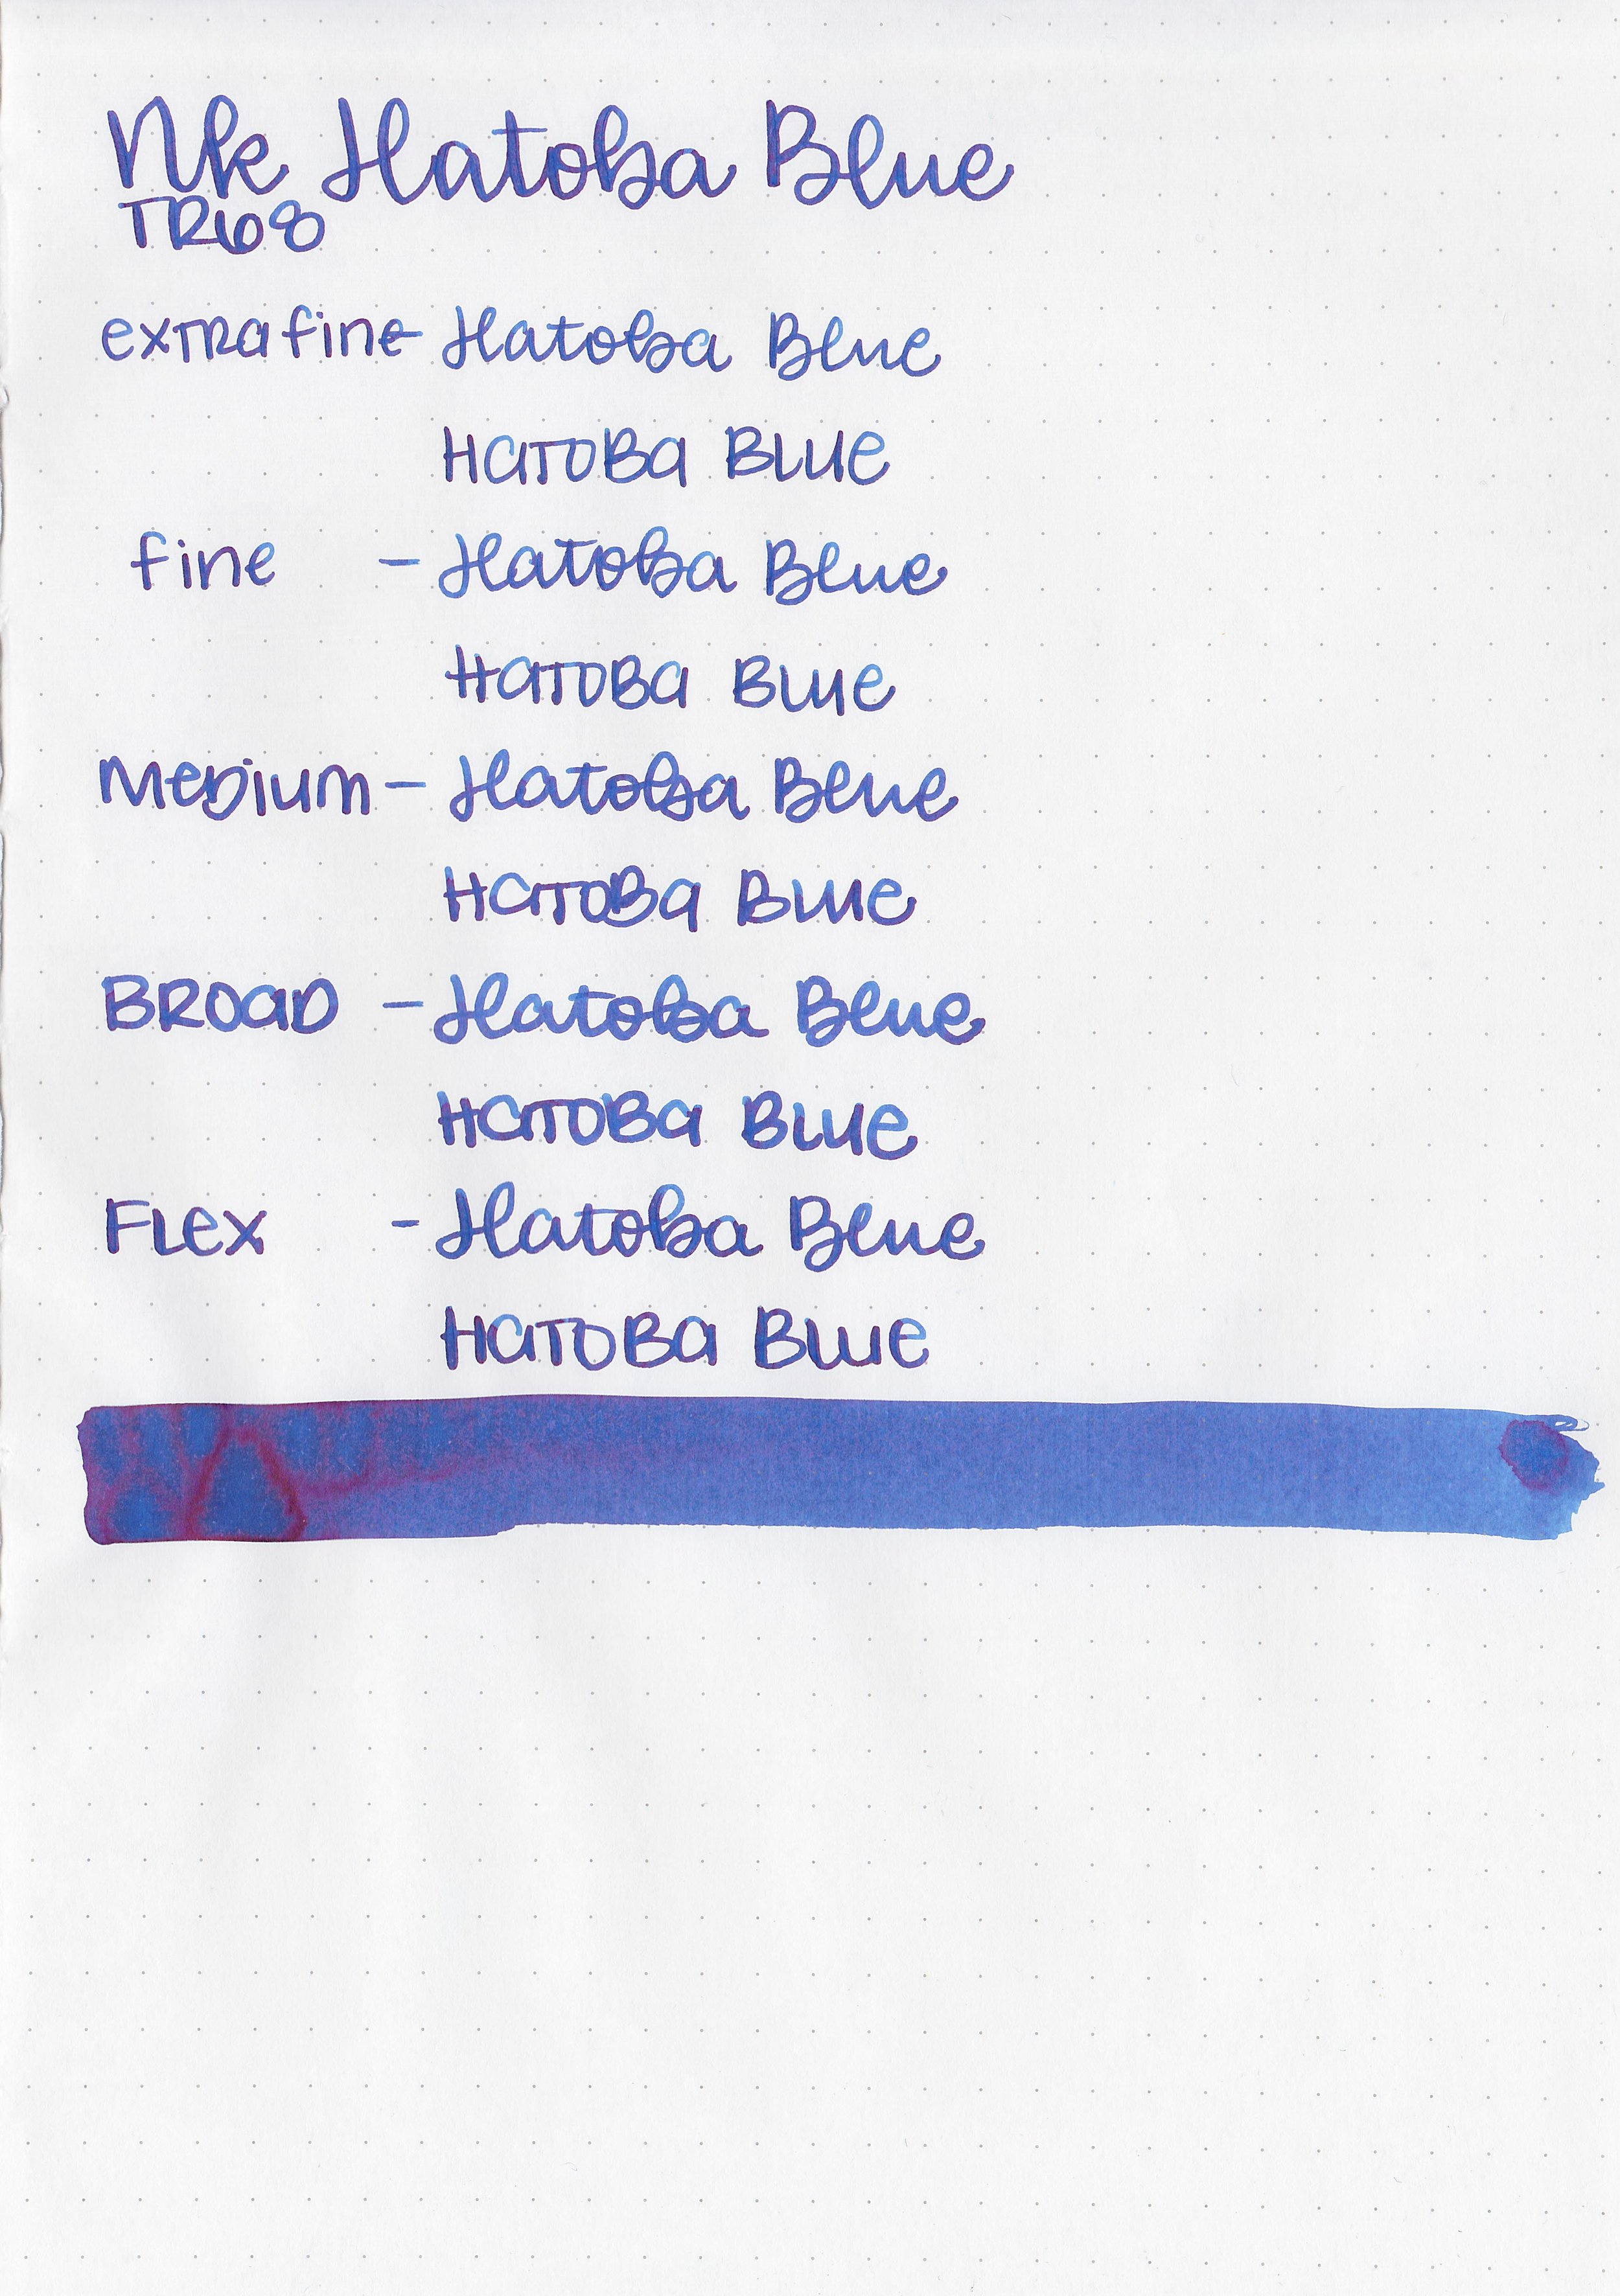 Nk Hatoba Blue
TR68
extra fine - Hatoba Blue
Hatoba Blue
fine - Hatoba Blue
Hatoba Blue
Medium - Hatoba Blue
Hatoba Blue
Broad - Hatoba Blue
Hatoba Blue
Flex - Hatoba Blue
Hatoba Blue